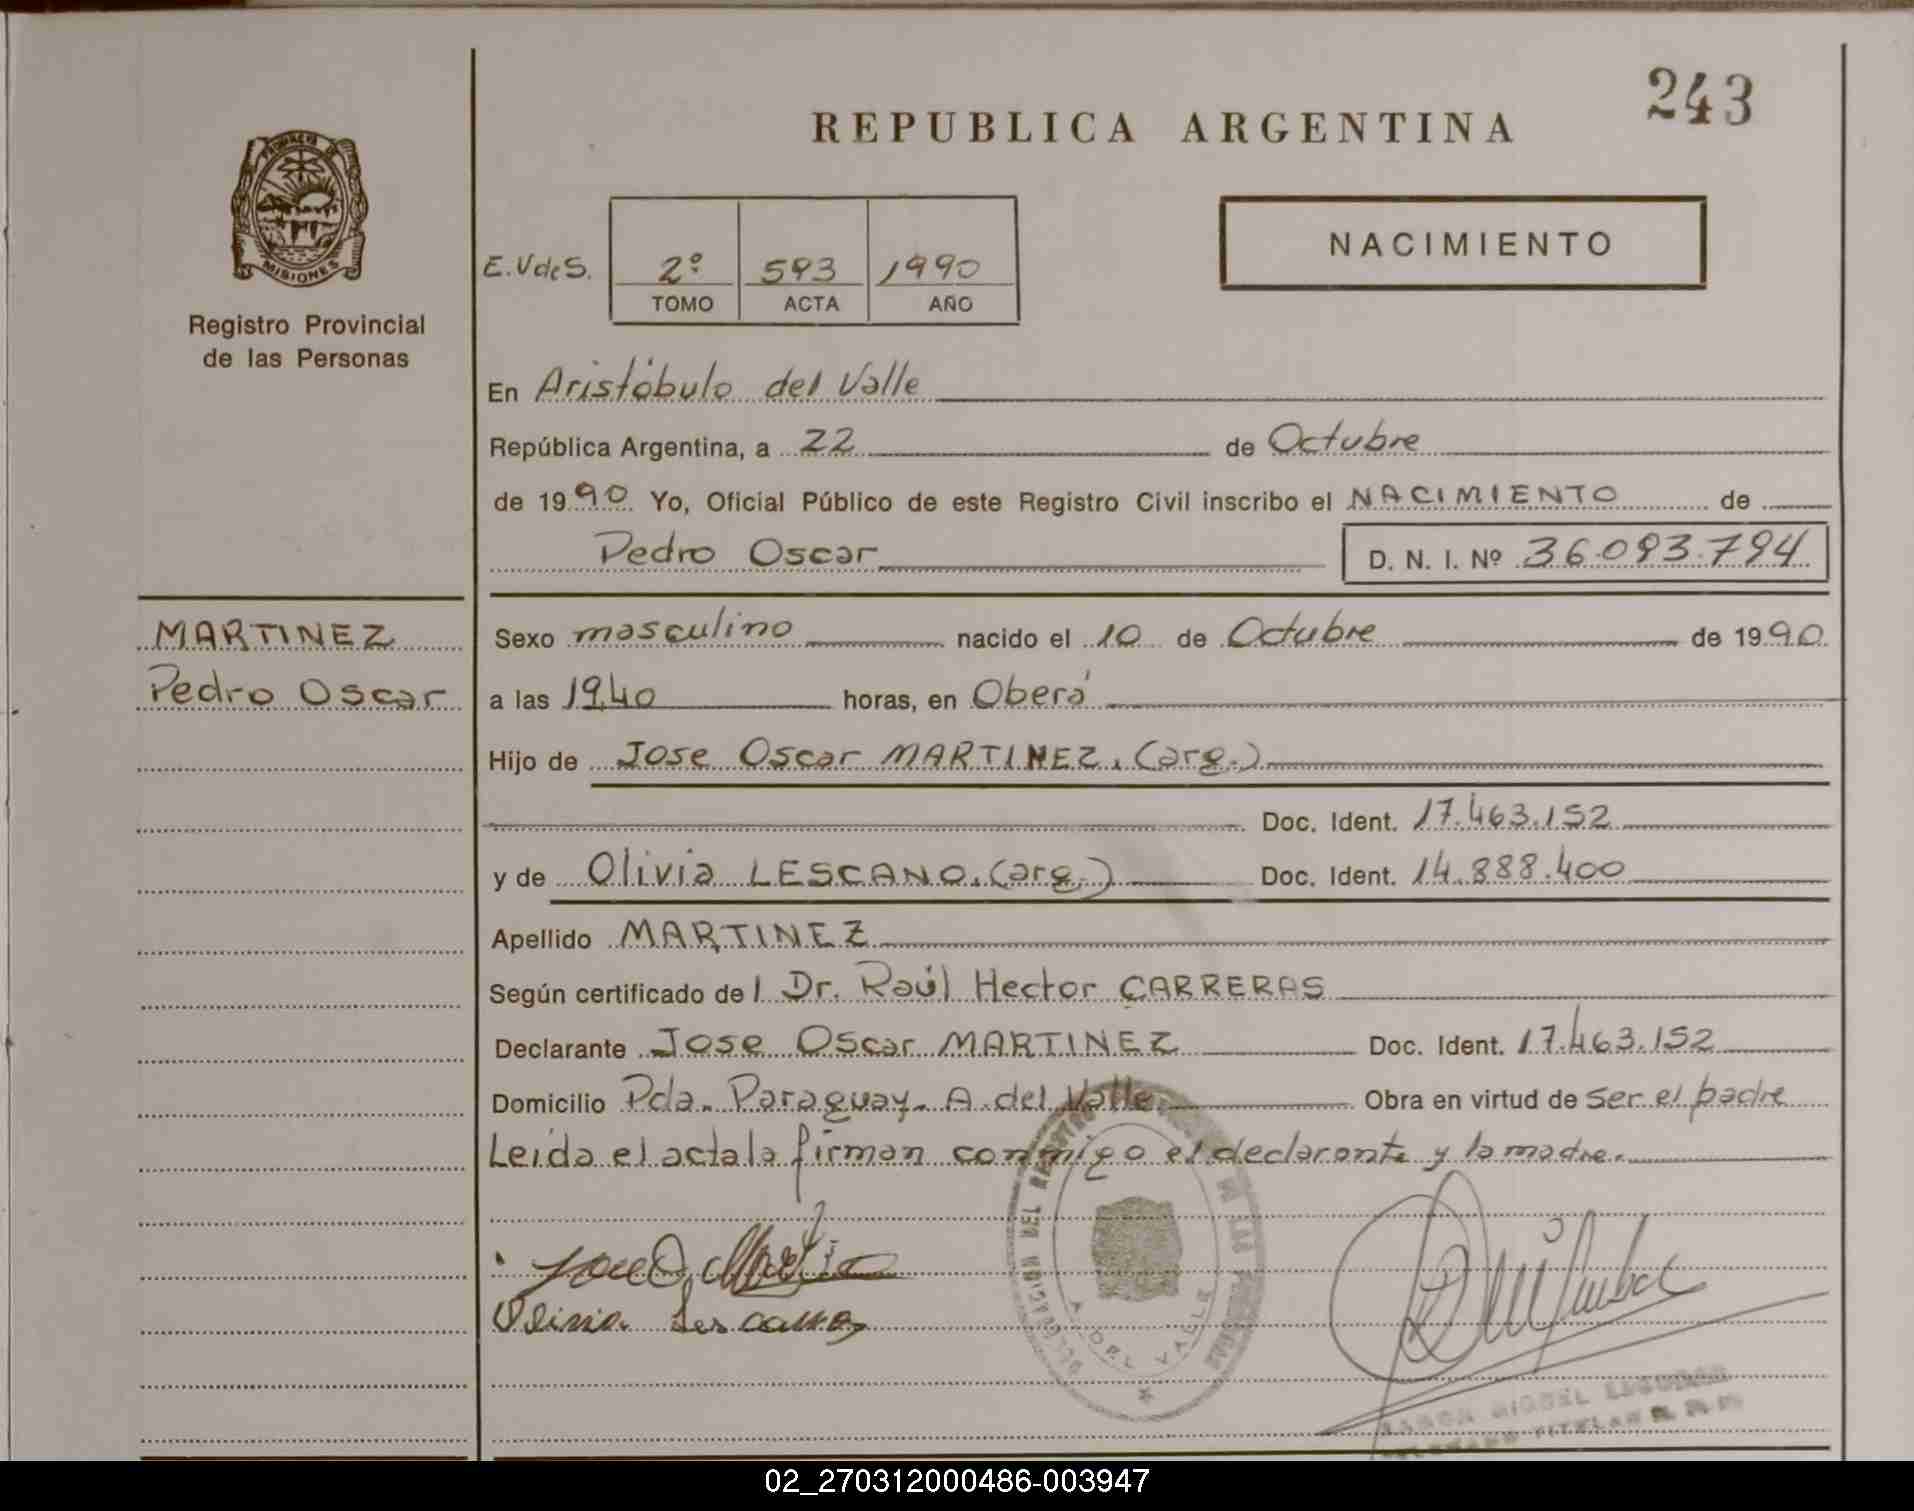 243
REPUBLICA ARGENTINA
PROVINCIA DE
MISIONES
Registro Provincial
de las Personas
NACIMIENTO
E.VdeS. 2º 593 1990
TOMO ACTA AÑO
En Aristóbulo del Valle
República Argentina, a 22 de Octubre
de 1990 Yo, Oficial Público de este Registro Civil inscribo el NACIMIENTO de
Pedro Oscar D. N. I. Nº 36.093.794
MARTINEZ
Pedro Oscar
Sexo masculino nacido el 10 de Octubre de 1990
a las 19,40 horas, en Oberá
Hijo de Jose Oscar MARTINEZ. (arg.)
Doc. Ident. 17.463.152
y de Olivia LESCANO. (arg.) Doc. Ident. 14.888.400
Apellido MARTINEZ
Según certificado del Dr. Raúl Hector CARRERAS
Declarante Jose Oscar MARTINEZ Doc. Ident. 17.463.152
Domicilio Pda. Paraguay. A. del Valle. Obra en virtud de ser el padre
Leida el acta la firman conmigo el declarante y la madre.
DEL REGISTRO DE LAS PERSONAS
A. DEL VALLE
Jose O. Martinez
Olivia Lescano
RAMON MIGUEL
TITULAR R. P. P.
02_270312000486-003947